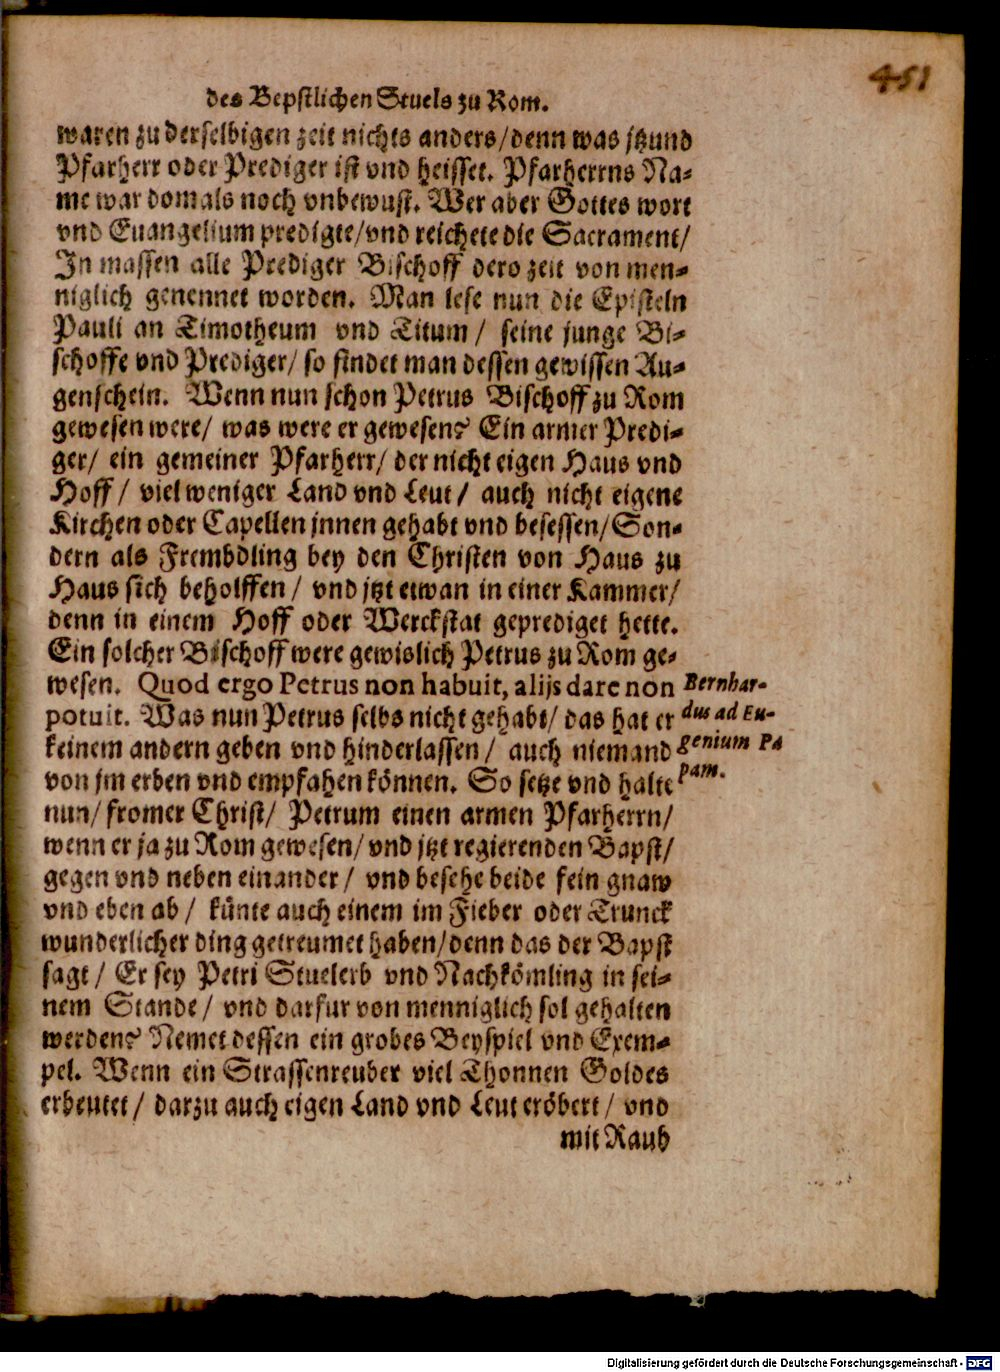 451
des Bepstlichen Stuels zu Rom.
waren zu derselbigen zeit nichts anders/denn was jtzund
Pfarherr oder Prediger ist vnd heisset. Pfarherrns Na-
me war domals noch vnbewust. Wer aber Gottes wort
vnd Euangelium predigte/vnd reichete die Sacrament/
In massen alle Prediger Bischoff dero zeit von men-
niglich genennet worden. Man lese nun die Episteln
Pauli an Timotheum vnd Titum / seine junge Bi-
schoffe vnd Prediger/ so findet man dessen gewissen Au-
genschein. Wenn nun schon Petrus Bischoff zu Rom
gewesen were/ was were er gewesen? Ein armer Predi-
ger/ ein gemeiner Pfarherr/ der nicht eigen Haus vnd
Hoff / viel weniger Land vnd Leut / auch nicht eigene
Kirchen oder Capellen jnnen gehabt vnd besessen/Son-
dern als Frembdling bey den Christen von Haus zu
Haus sich beholffen / vnd jtzt etwan in einer Kammer/
denn in einem Hoff oder Werckstat geprediget hette.
Ein solcher Bischoff were gewislich Petrus zu Rom ge-
wesen. Quod ergo Petrus non habuit, alijs dare non
potuit. Was nun Petrus selbs nicht gehabt/ das hat er
keinem andern geben vnd hinderlassen / auch niemand
von jm erben vnd empfahen können. So setze vnd halte
nun/ fromer Christ/ Petrum einen armen Pfarherrn/
wenn er ja zu Rom gewesen/ vnd jtzt regierenden Bapst/
gegen vnd neben einander / vnd besehe beide fein gnaw
vnd eben ab / künte auch einem im Fieber oder Trunck
wunderlicher ding getreumet haben/denn das der Bapst
sagt / Er sey Petri Stuelerb vnd Nachkömling in sei-
nem Stande / vnd darfur von menniglich sol gehalten
werden? Nemet dessen ein grobes Beyspiel vnd Exem-
pel. Wenn ein Strassenreuber viel Thonnen Goldes
erbeutet / darzu auch eigen Land vnd Leut eröbert / vnd
mit Raub
Bernhar-
dus ad Eu-
genium Pa
pam.
Digitalisierung gefördert durch die Deutsche Forschungsgemeinschaft - DFG